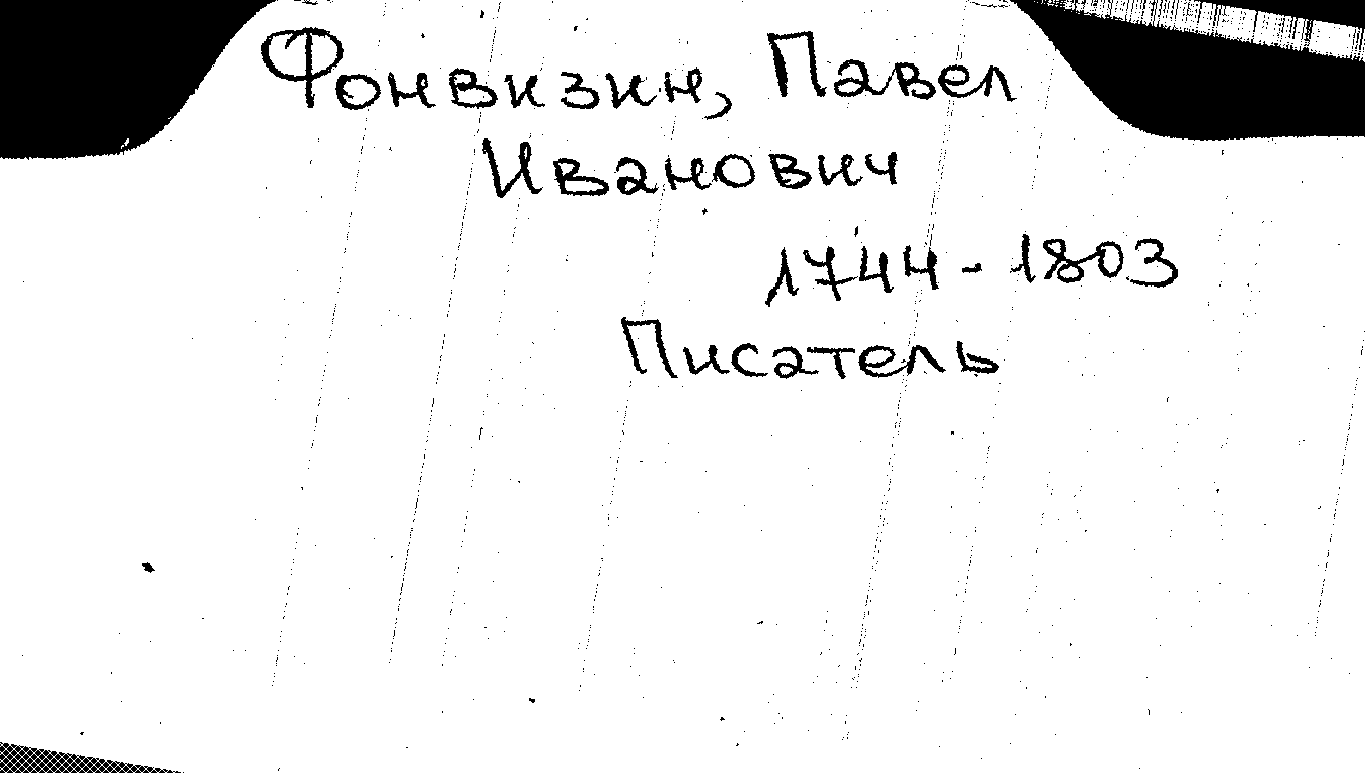 Фонвизин, Павел
Иванович
1744-1803
Писатель